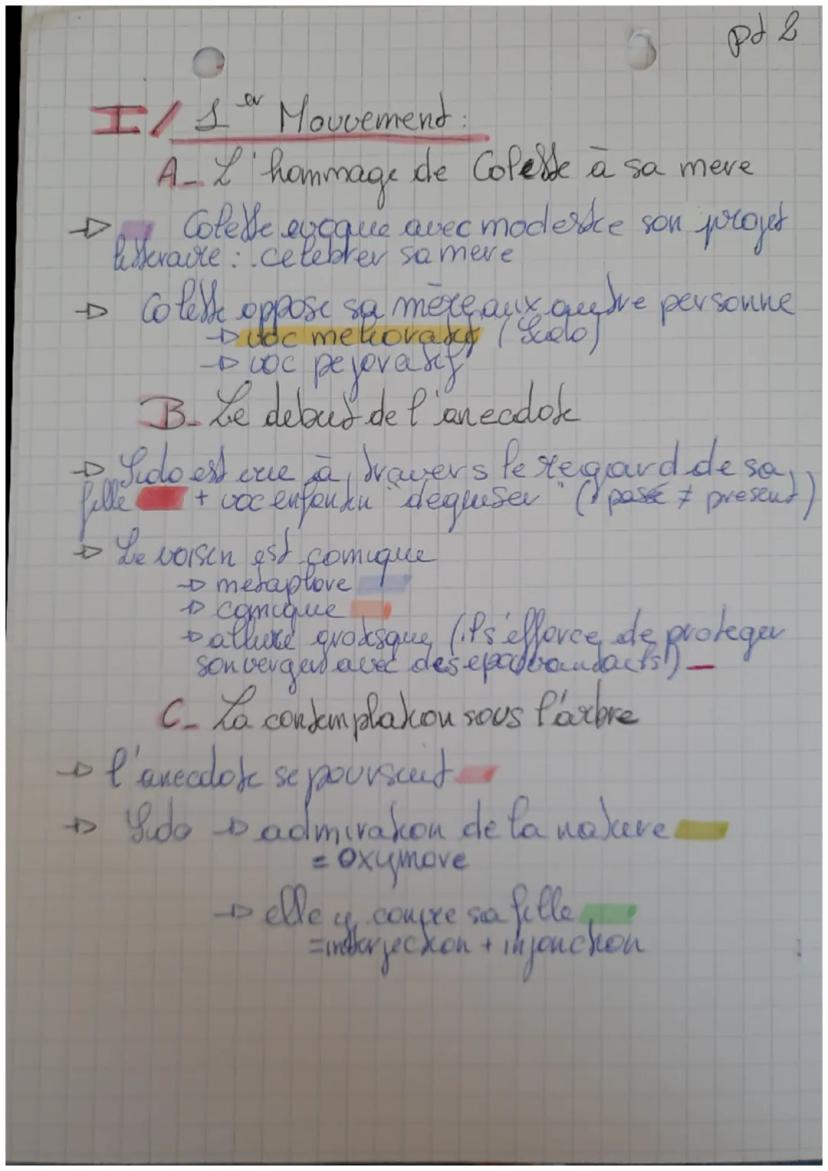 pt 2
I/ 1er Mouvement :
A_ L'hommage de Colette à sa mere
Colette evoque avec modestie son projet
litteraire : celebrer sa mere
Colette oppose sa mère aux autre personne
voc melioratif (Sido)
voc pejoratif
B_ Le debut de l'anecdote
Sido est vue à travers le regard de sa
fille + voc enfantin "deguiser" (passé ≠ present)
Le voisin est comique
metaphore
comique
allure grotesque (il s'efforce de proteger
son verger avec des epouvantails)
C_ La contemplation sous l'arbre
l'anecdote se poursuit
Sido admiration de la nature
= oxymore
elle y convie sa fille
= interjection + injonction